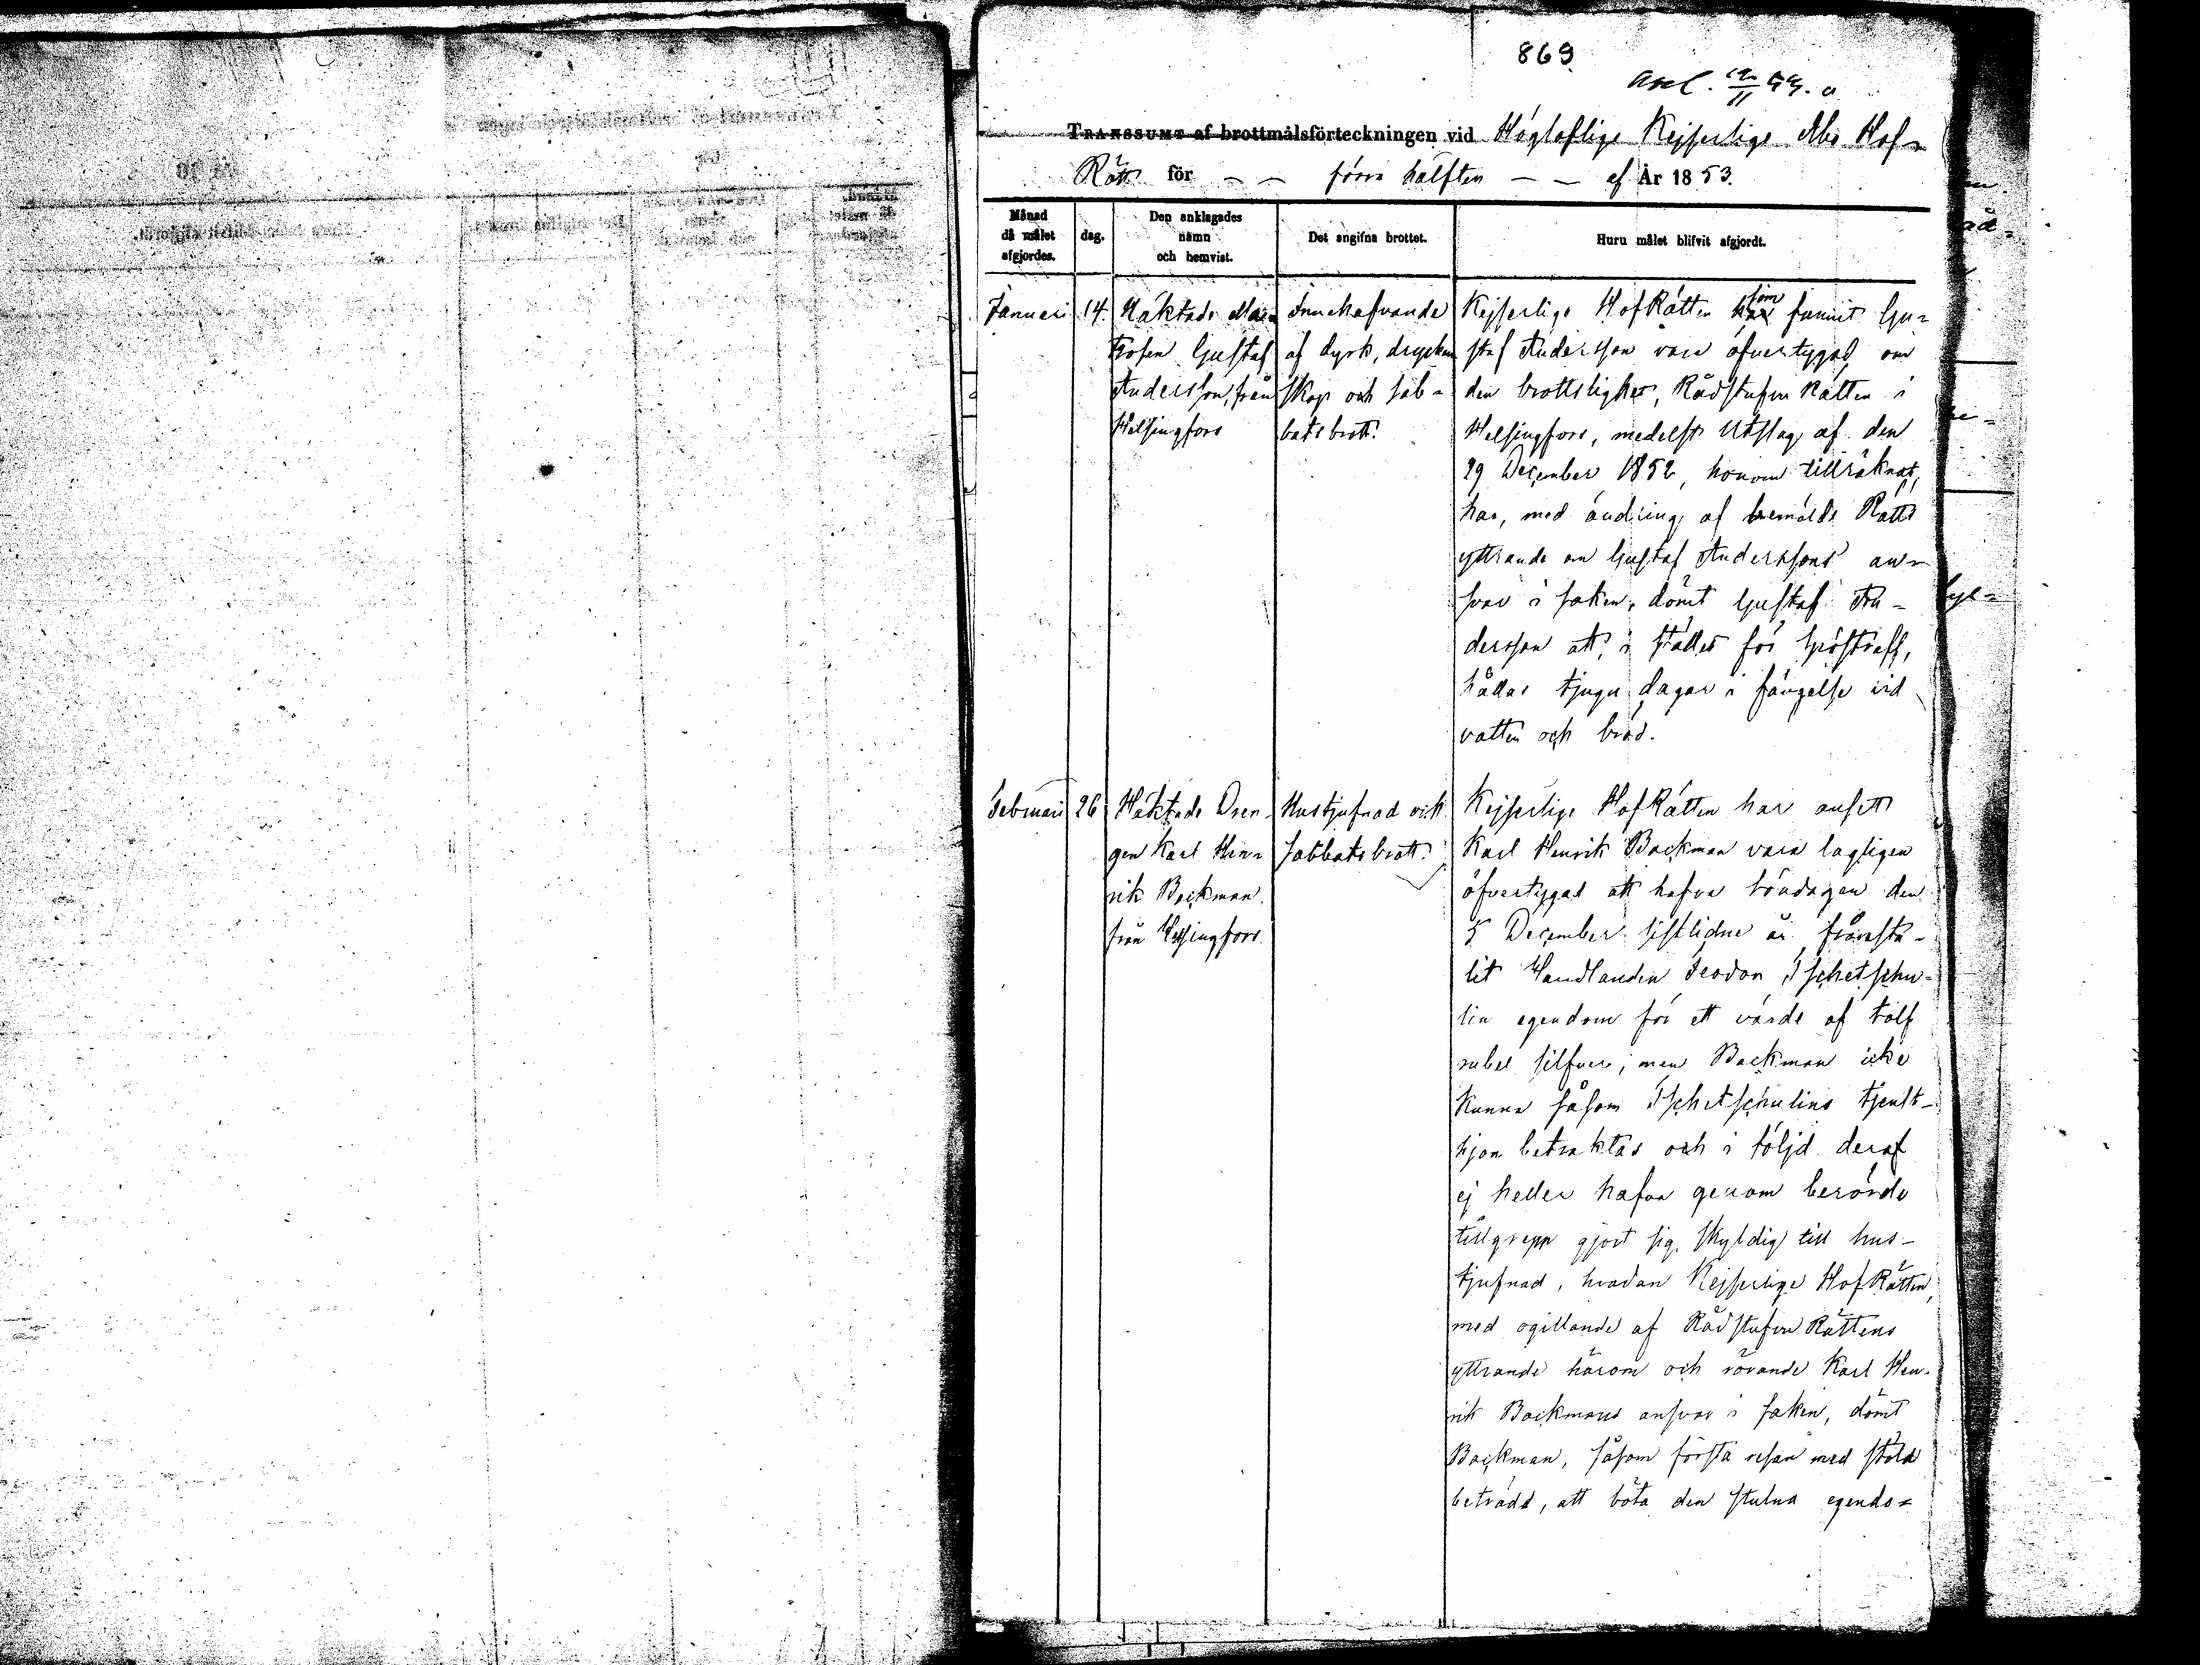 869
TRANSSUMT af brottmålsförteckningen vid Högloflige Kejserlige Åbo Hof-
Rätt för - - förra hälften - - af År 1853.
Månad
då målet
afgjordes.
dag.
Den anklagades
namn
och hemvist.
Det angifna brottet.
Huru målet blifvit afgjordt.
Januari
14.
Häktade Ma-
trosen Gustaf
Andersson, från
Helsingfors
Innehafvande
af dyrk, drycken
skap och sab-
batsbrott.
Kejserlige HofRätten som funnit Gu-
staf Andersson vara öfvertygad om
den brottslighet, RådstufvuRätten i
Helsingfors, medelst Utslag af den
29 December 1852, honom tillräknat,
har, med ändring af bemälde Rätts
yttrande om Gustaf Anderssons an-
svar i saken, dömt Gustaf An-
dersson att, i stället för spöstraff,
hållas tjugu dagar i fängelse vid
vatten och bröd.
Februari
26
Häktade Dren-
gen Karl Hen-
rik Backman,
från Helsingfors.
Hustjufnad och
sabbatsbrott.
Kejserlige HofRätten har ansett
Karl Henrik Backman vara lagligen
öfvertygad att hafva söndagen den
5 December sistlidne år frånstu-
lit Handlanden Feodor Tschetschu-
lin egendom för ett värde af tolf
rubel silfver; men Backman icke
kunna såsom Tschetschulins tjenst-
hjon betraktas och i följd deraf
ej heller hafva genom berörde
tillgrepp gjort sig skyldig till hus-
tjufnad, hvadan Kejserlige HofRätten,
med ogillande af RådstufvuRättens
yttrande härom och rörande Karl Hen-
rik Backmans ansvar i saken, dömt
Backman, såsom första resan med stöld
beträdd, att böta den stulna egendo-